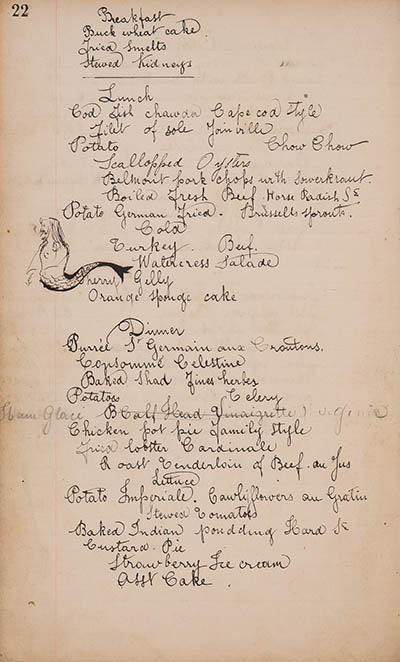 22
Breakfast
Buck wheat cake
Fried Smelts
Stewed Kidneys
Lunch
Cod Fish chawder Cape cod style
Filet of sole Joinville
Potato Chow Chow
Scallopped Oysters
Belmont pork chops with sowerkraut.
Boiled Fresh Beef. Horse Radish Se
Potato German Fried. Brusselts sprouts.
Cold
Turkey. Beef.
Watercress Salade
Sherry Gelly
Orange sponge cake
Dinner
Purree St Germain aux Croutons.
Consommé Celestine
Baked Shad Fines herbes
Potatoes Celery
Ham Glacé B Calf Head Vinaigrette
Chicken pot pie Family style
Fried lobster Cardinale
Roast Tenderloin of Beef. au Jus
Lettuce
Potato Imperiale. Cawliflowers au Gratin
Stewed Tomatoes
Baked Indian poudding Hard Se
Custard Pie
Strawberry Ice cream
Asst Cake.